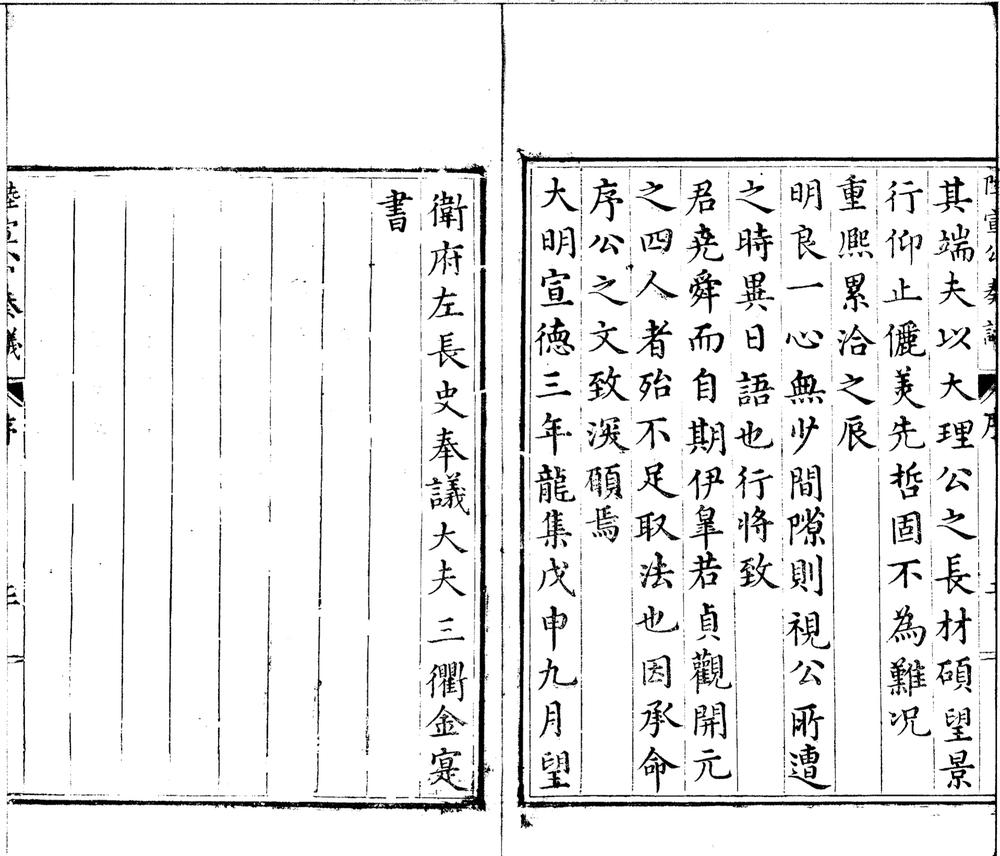 陸宣公奏議
序
其端夫以大理公之長材碩望景
行仰止儷羙先哲固不為難况
重熈累洽之辰
明良一心無少間隙則視公所遭
之時異日語也行將致
君堯舜而自期伊皐若貞觀開元
之四人者殆不足取法也因承命
序公之文致深願焉
大明宣德三年龍集戊申九月望
衛府左長史奉議大夫三衢金寔
書
陸宣公奏議
序